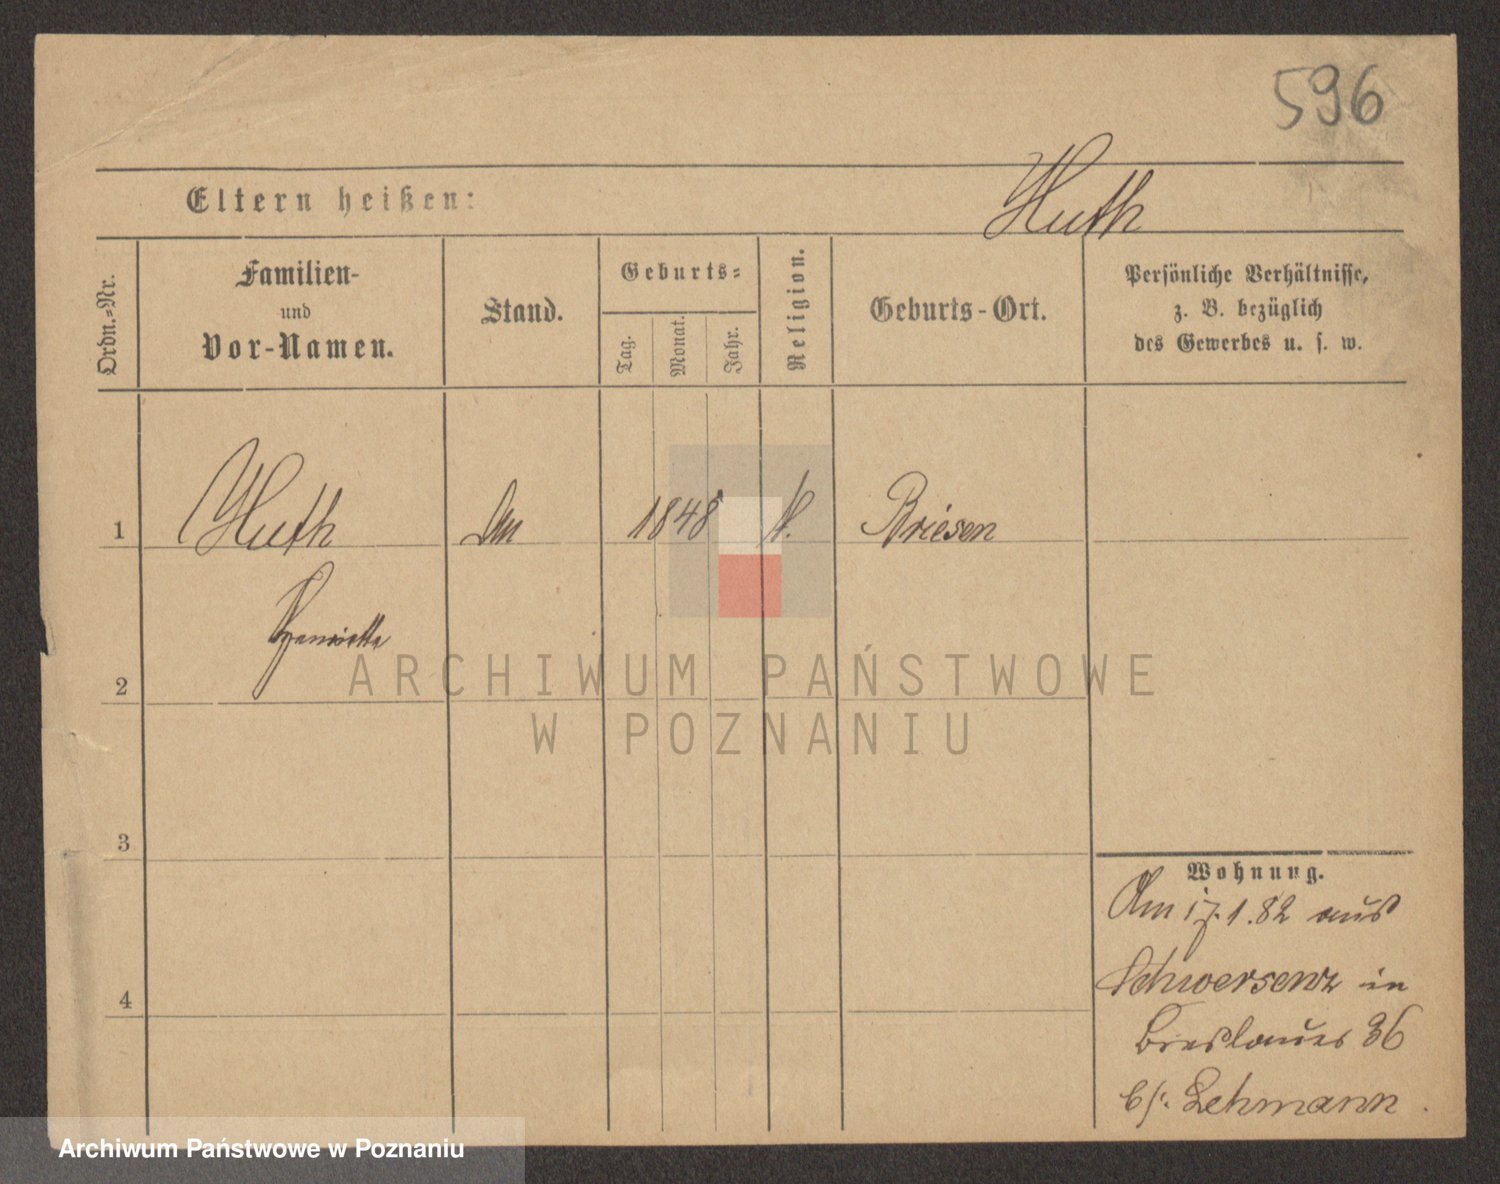 596
Eltern heißen:
Huth
Ordn.=Nr.
Familien-
und
Vor-Namen.
Stand.
Geburts=
Tag.
Monat.
Jahr.
Religion.
Geburts-Ort.
Persönliche Verhältnisse,
z. B. bezüglich
des Gewerbes u. s. w.
1
Huth
1848
Briesen
Henriette
2
ARCHIWUM PAŃSTWOWE
W POZNANIU
3
4
Wohnung.
Am 17.1.82 aus
Schwersenz in
Breslauer 36
b/. Lehmann.
Archiwum Państwowe w Poznaniu